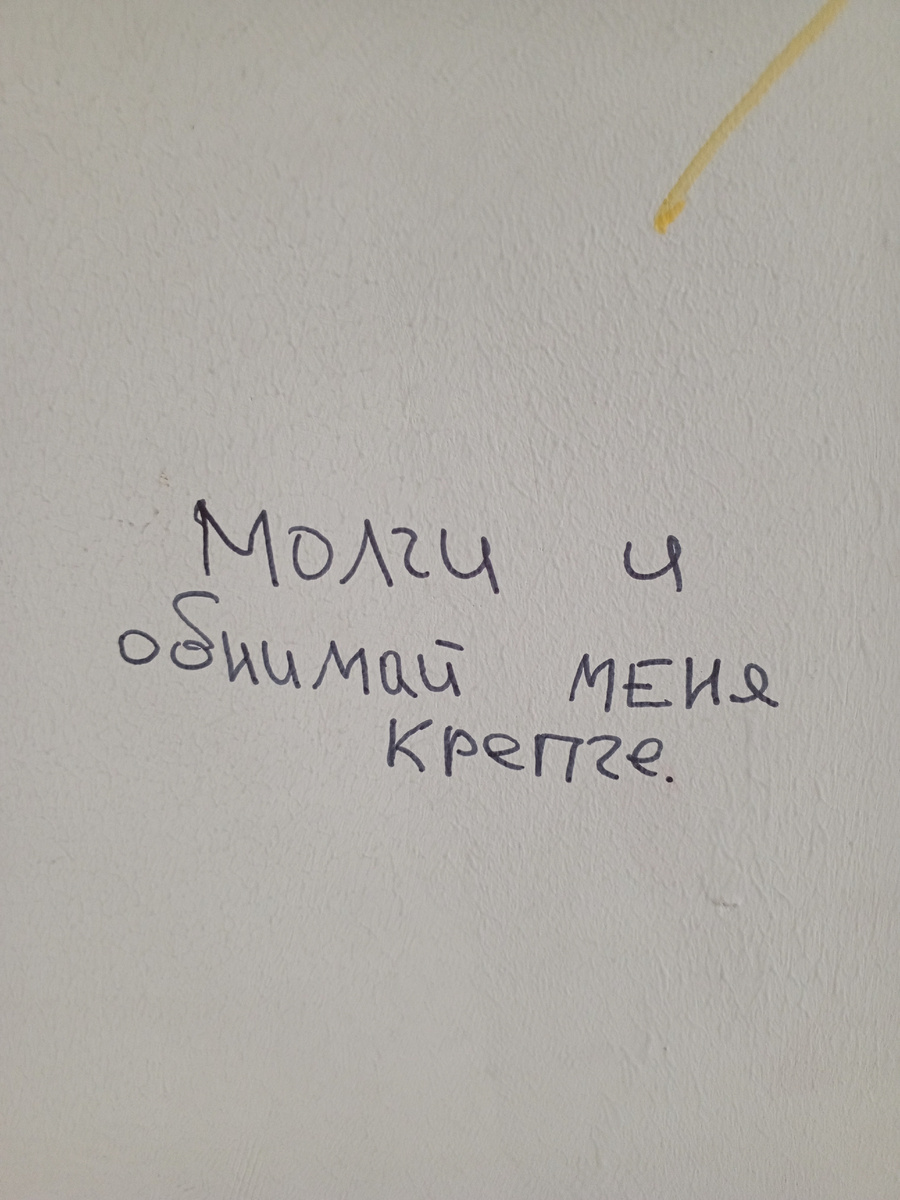 Молчи и
обнимай меня
крепче.